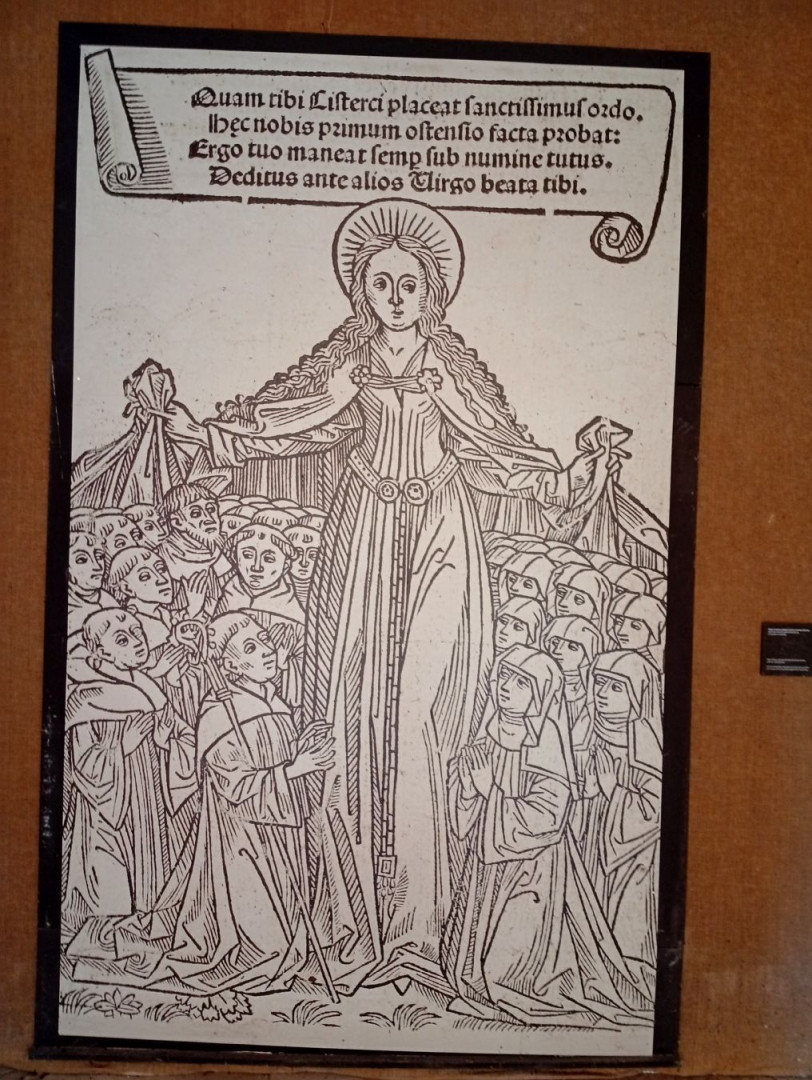 Quam tibi Cisterci placeat sanctissimus ordo.
Hęc nobis primum ostensio facta probat:
Ergo tuo maneat semꝑ sub numine tutus.
Deditus ante alios Virgo beata tibi.